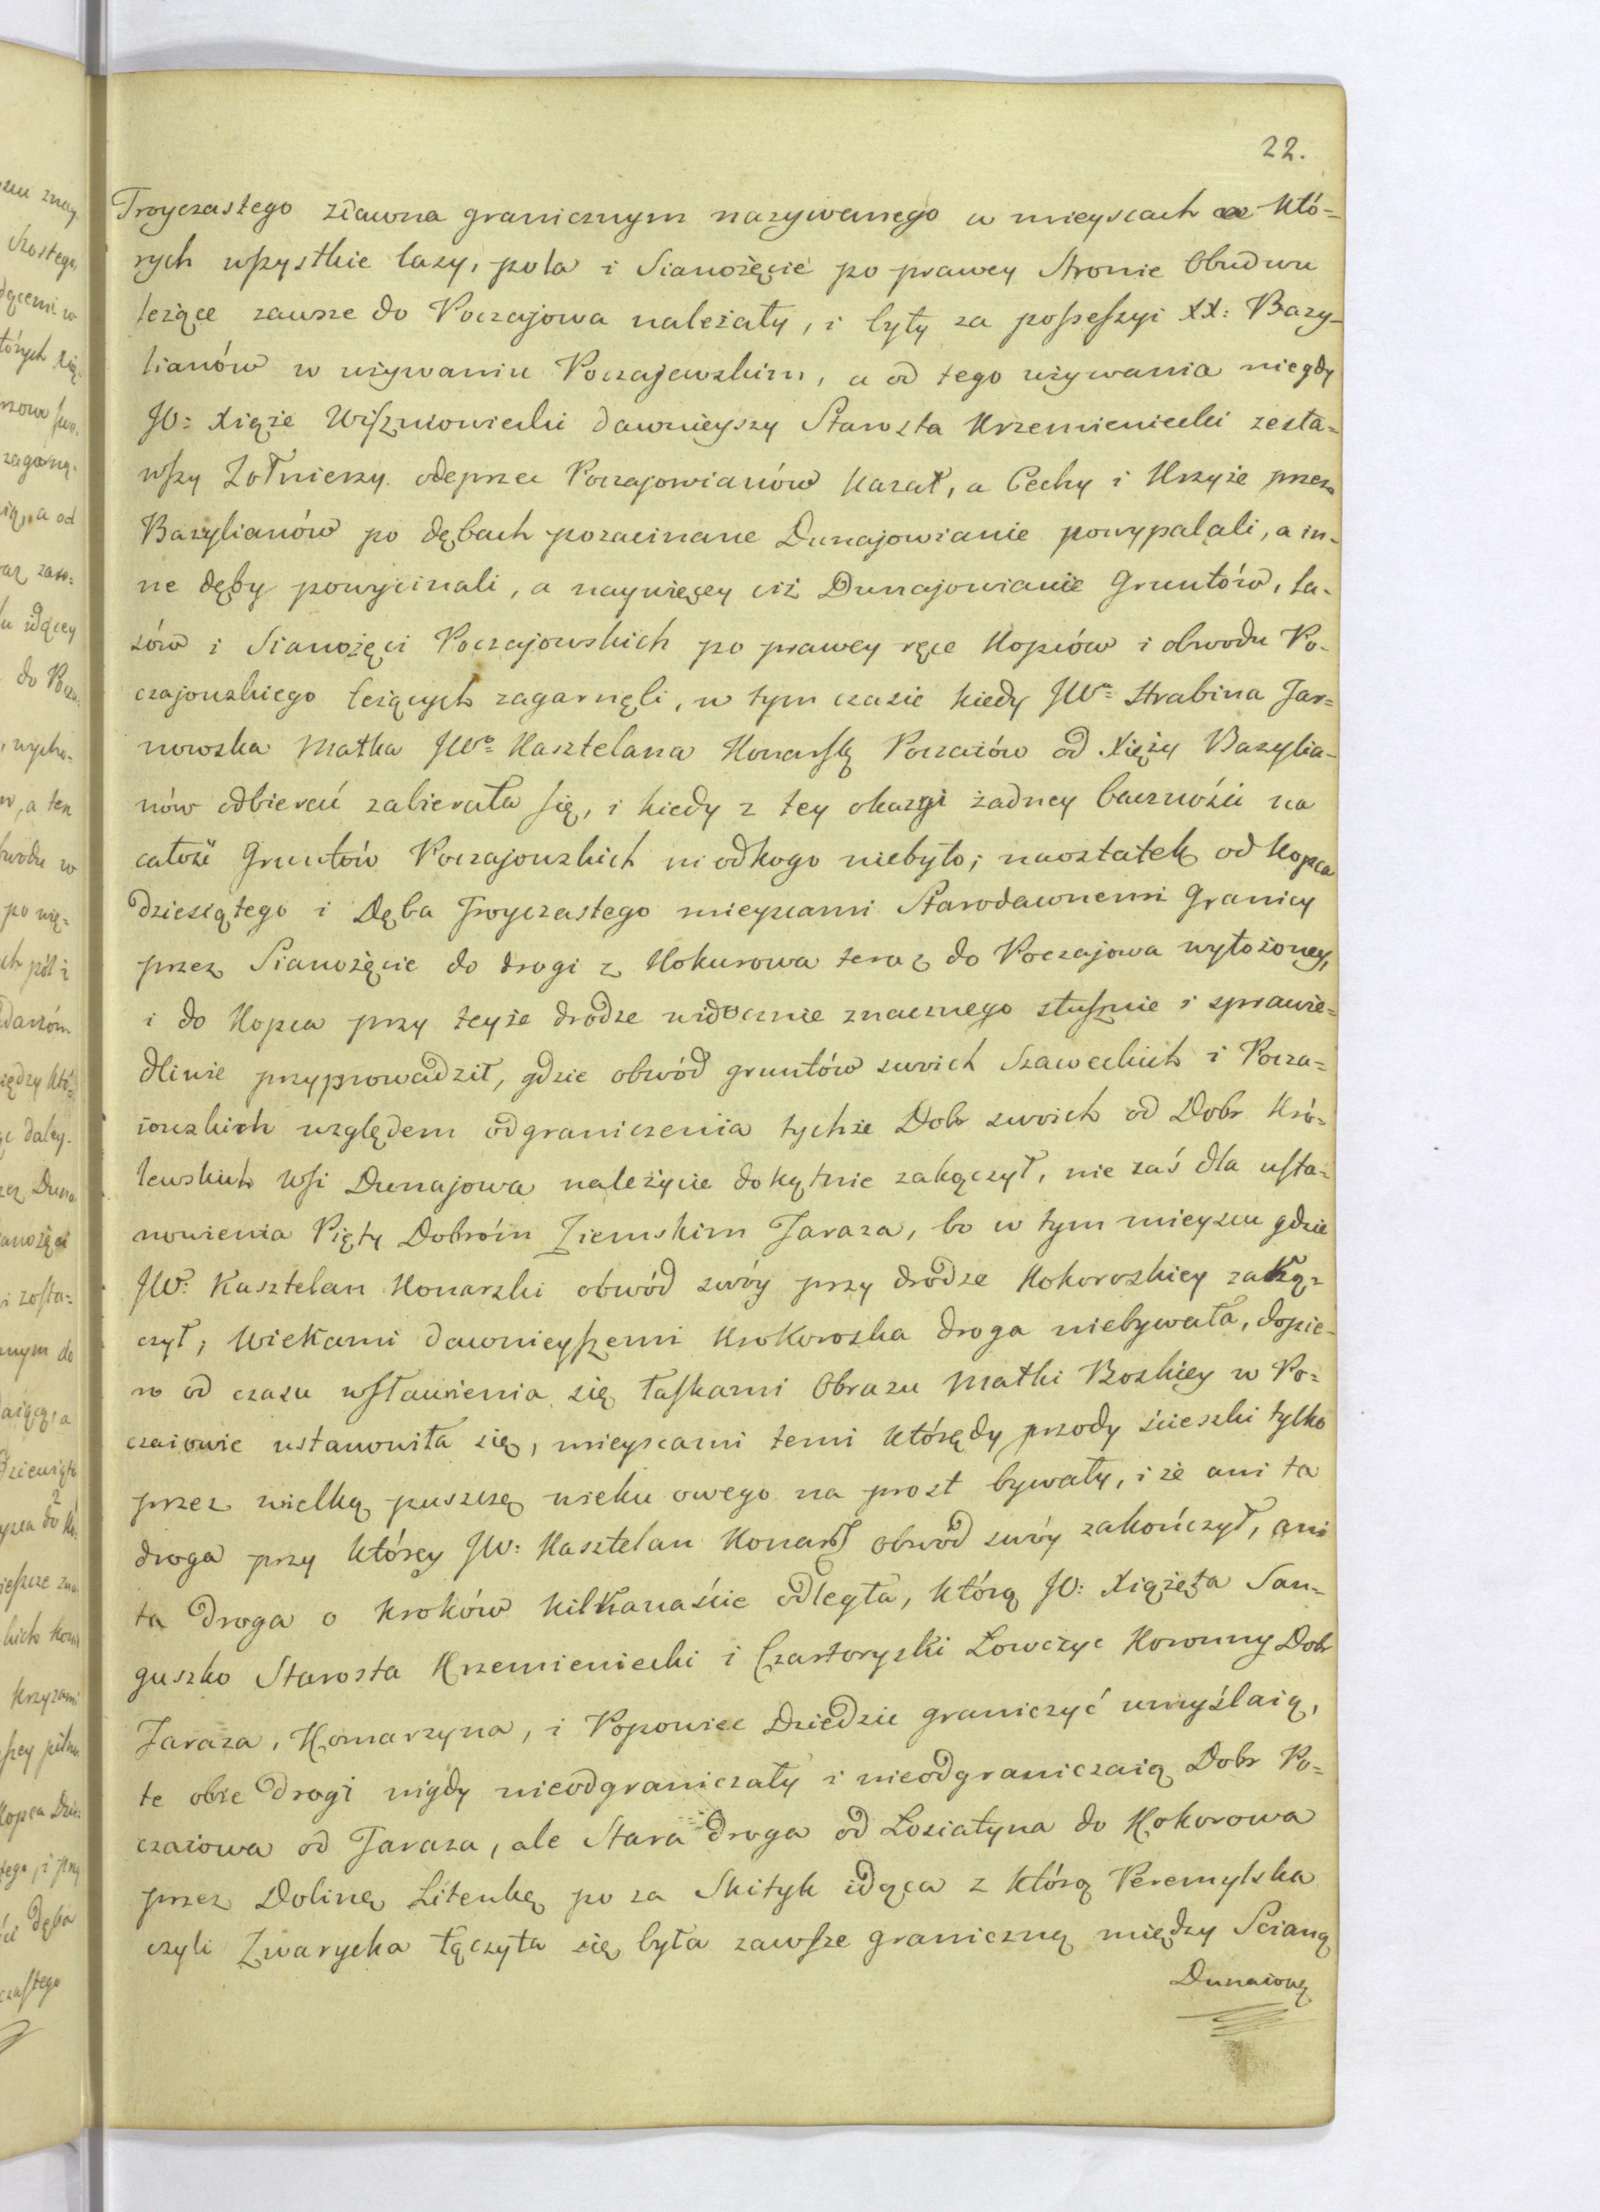 22.
Troyczastego zdawna granicznym nazywanego w mieyscach w któ=
rych wszystkie łazy, pola i Sianożęcie po prawey Stronie Obudwu
leżące zawsze do Poczajowa należały, i były za possessyi XX: Bazy-
lianów w używaniu Poczajewskim, a od tego używania niegdy
JW: Xiąże Wiszniowiecki dawnieyszy Starosta Krzemieniecki zesła=
wszy Żołnierzy odeprzec Poczajowianów kazał, a Cechy i Krzyże przez
Bazylianów po dębach pozacinane Dunajowianie powypalali, a in-
ne dęby powycinali, a naywięcey ciż Dunajowianie Gruntów, ła-
zów i Sianożęci Poczajowskich po prawey ręce Kopców i obwodu Po-
czajowskiego leżących zagarnęli, w tym czasie kiedy JWa= Hrabina Tar=
nowska Matka JWo= Kasztelana Konarsk Poczaiów od Xięży Bazylia-
nów odbierać zabierała się, i kiedy z tey okazyi żadney baczności na
całość Gruntów Poczajowskich ni odkogo niebyło; naostatek od Kopca
dziesiątego i Dęba Troyczastego mieyscami Starodawnemi Granicy
przez Sianożęcie do drogi z Kokurowa teraz do Poczajowa wyłożoney,
i do Kopca przy teyże drodze widocznie znacznego słusznie i sprawie=
dliwie przyprowadził, gdzie obwód gruntów swoich Szaweckich i Pocza=
iowskich względem odgraniczenia tychże Dobr swoich od Dobr Kró=
lewskich Wsi Dunajowa należycie dokętnie zakączył, nie zaś dla usta=
nowienia Pięty Dobróm Ziemskim Taraza, bo w tym mieyscu gdzie
JW: Kasztelan Konarski obwód swóy przy drodze Kokoroskiey zaką=
czył; Wiekami dawnieyszemi Krokoroska droga niebywała, dopie-
ro od czasu wsławienia się łaskami Obrazu Matki Boskiey w Po=
czaiowie ustanowiła się, mieyscami temi którędy przody ścieszki tylko
przez wielką puszczę wieku owego na prost bywały, i że ani ta
droga przy którey JW: Kasztelan Konars obwód swóy zakończył, ani
ta droga o kroków kilkanaście odległa, którą JO: Xiążęta San-
guszko Starosta Krzemieniecki i Czartoryski Łowczyc Koronny Dobr
Taraza, Komarzyna, i Popowiec Dziedzic graniczyć umyślaią,
te obie drogi nigdy nieodgraniczały i nieodgraniczaią Dobr Po=
czaiowa od Taraza, ale Stara droga od Łosiatyna do Kokorowa
przez Dolinę Litenkę po za Skityk idąca z którą Peremylska
czyli Zwarycka łączyła się była zawsze graniczną między Scianą
Dunaiową